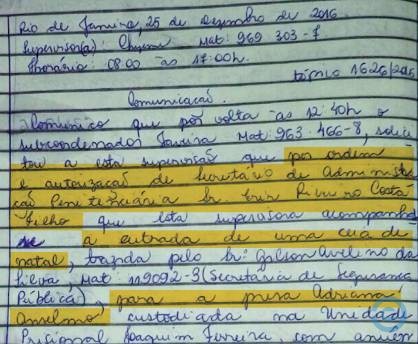 Rio de Janeiro, 25 de Dezembro de 2016.
Supervisor(a): Mat: 969 303-7
Horário: 08:00 às 17:00h.
termo 1626/2016
Comunicação.
Comunico que por volta às 12:40h o
subcoordenador Mat: 963-466-8, solici
tou a esta supervisão que por ordem
e autorização do Secretário de Administra
ção Penitenciária Sr. Ribeiro Costa
Filho que esta supervisora acompanha
sse a entrada de uma ceia de
natal, trazida pelo Sr: Gilson Avelino da
Silva, Mat: 119092-3 (Secretaria de Segurança
Pública), para a presa Adriana
Anselmo, custodiada na Unidade
Prisional Joaquim Ferreira, com